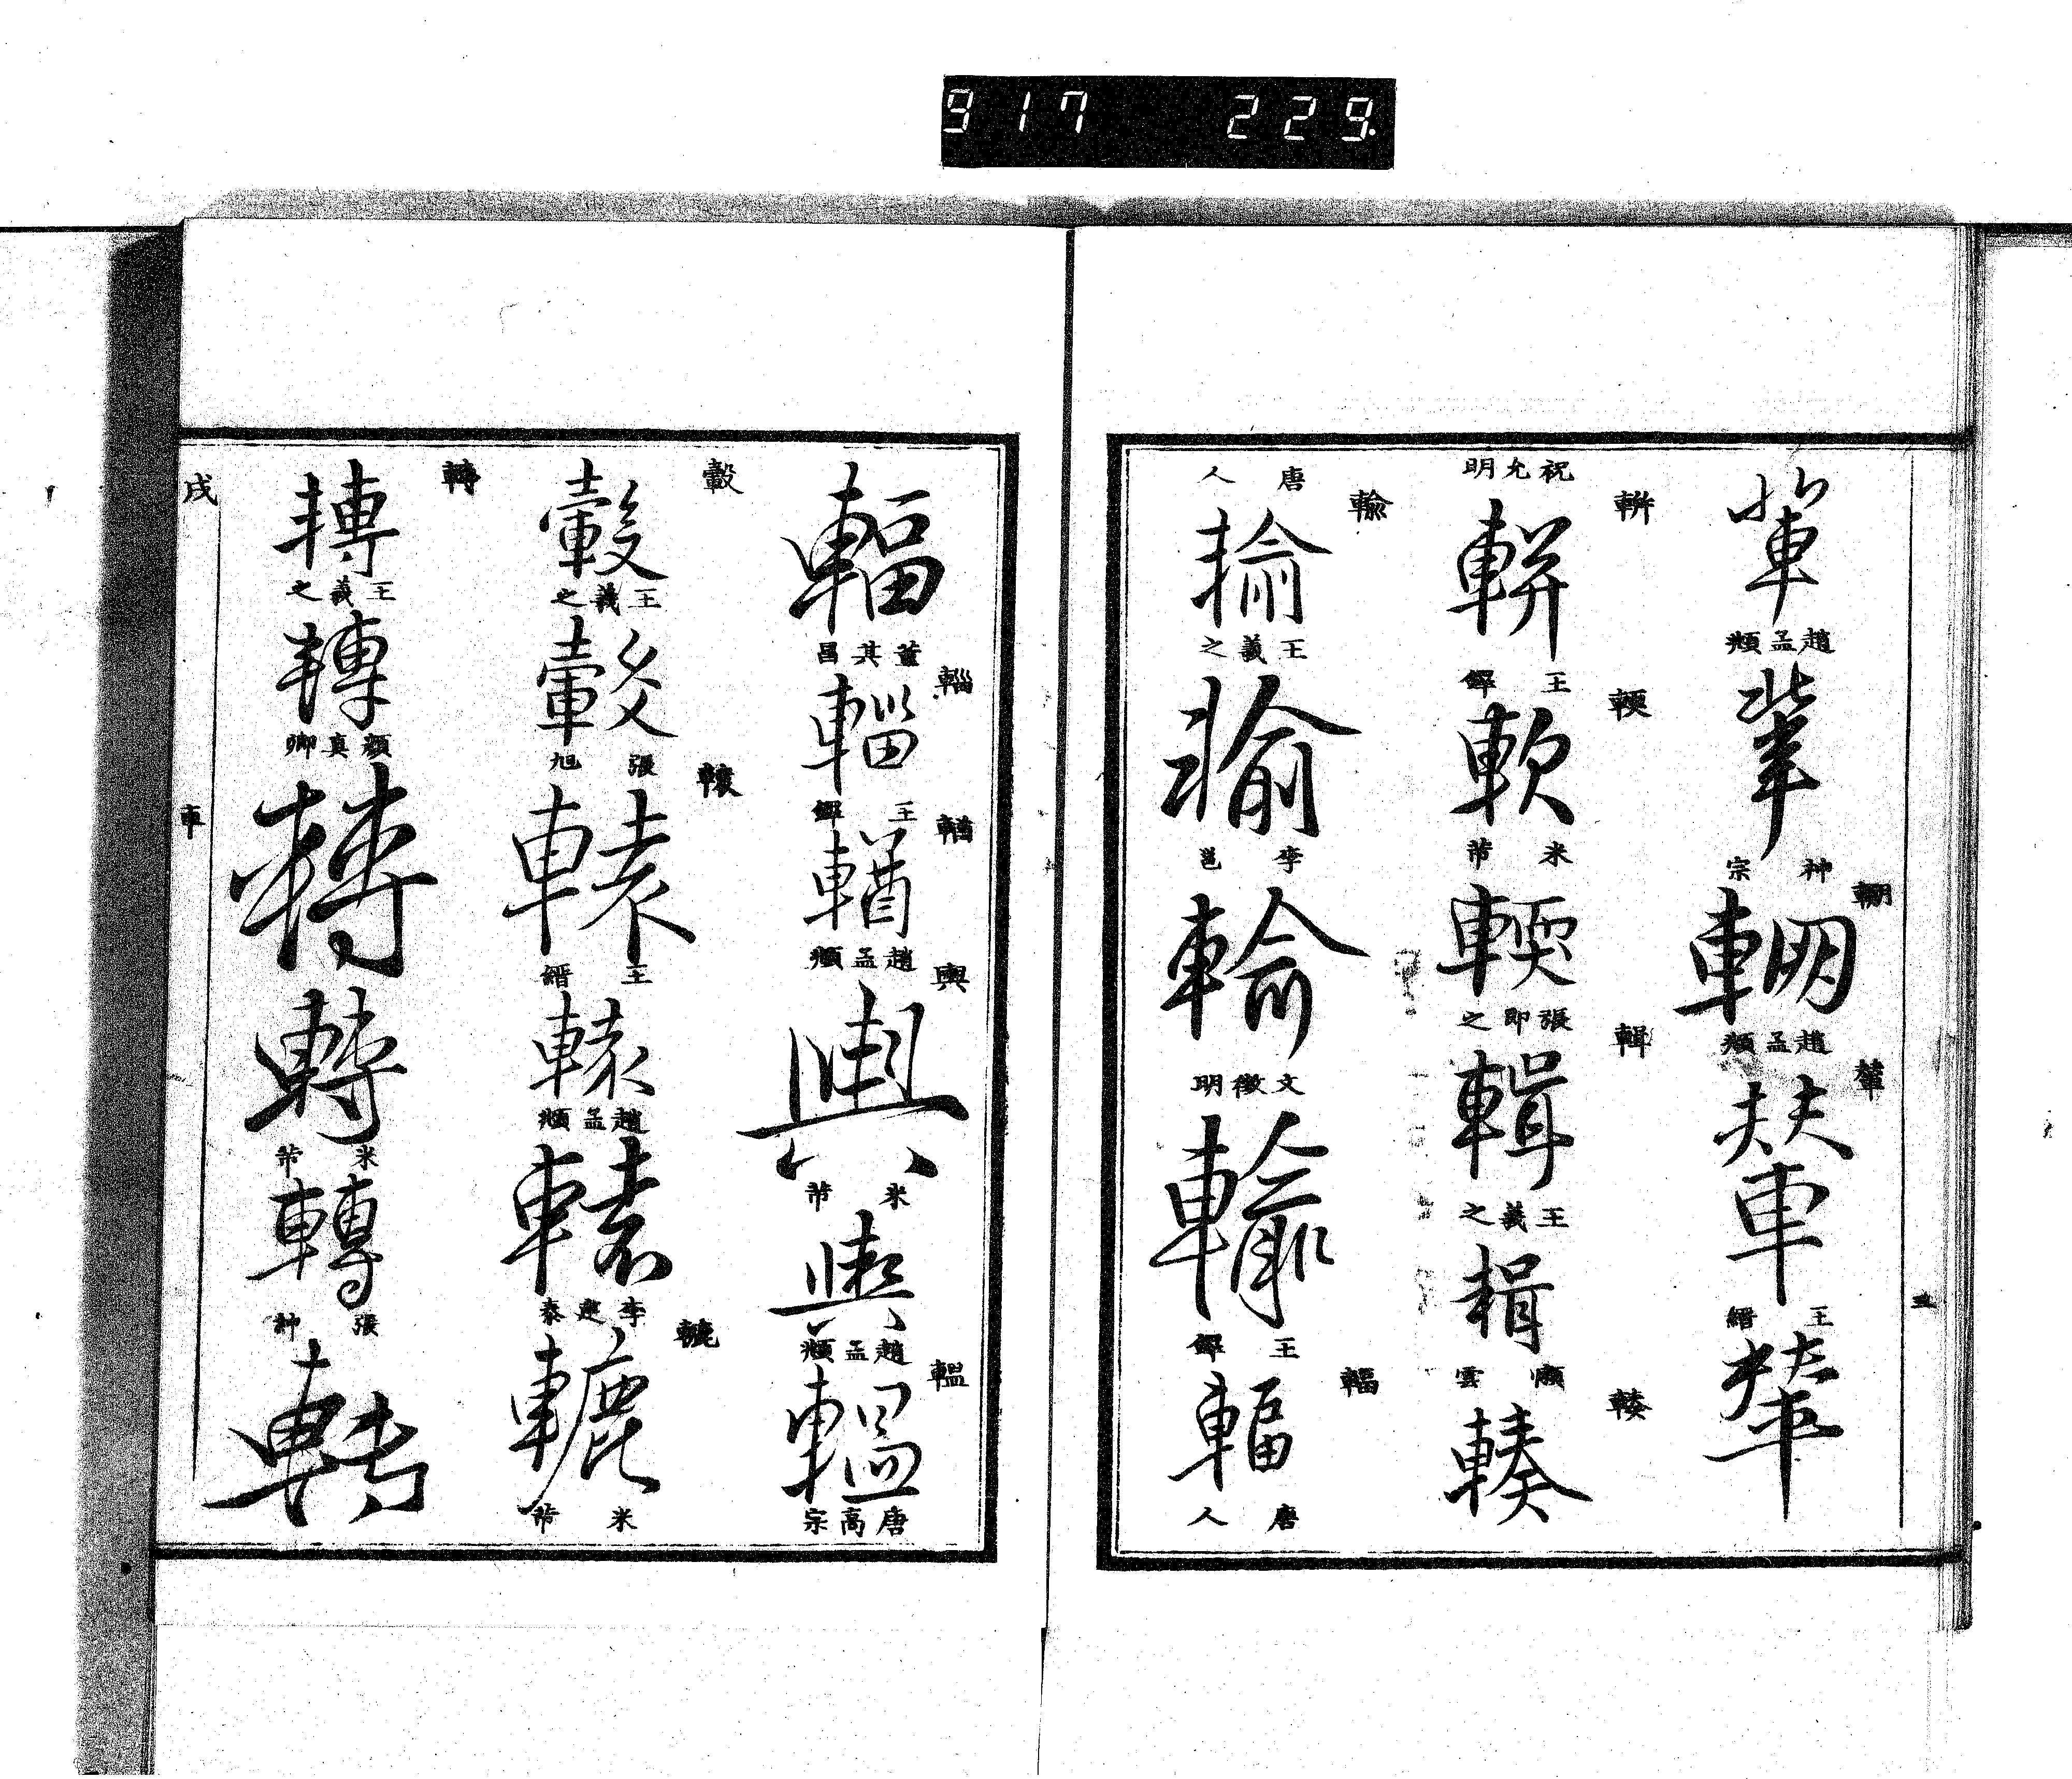 917 229
輩 趙孟頫 輩 神宗 輣 輞 趙孟頫 輦 輦 王縉 輦
祝允明 輧 軿 王鐸 輭 軟 米芾 輭 張即之 輯 輯 王羲之 輯 顧雲 輳 輳
唐人 輸 輸 王羲之 輸 李邕 輸 文徵明 輸 王鐸 輻 輻 唐人
輻 董其昌 輜 輜 王鐸 輶 輶 趙孟頫 輿 輿 米芾 輿 趙孟頫 轀 轀 唐高宗
轂 轂 王羲之 轂 張旭 轅 轅 王縉 轅 趙孟頫 轅 李建泰 轆 轆 米芾
轉 轉 王羲之 轉 顏真卿 轉 轉 米芾 轉 張翀 轉
戌 車